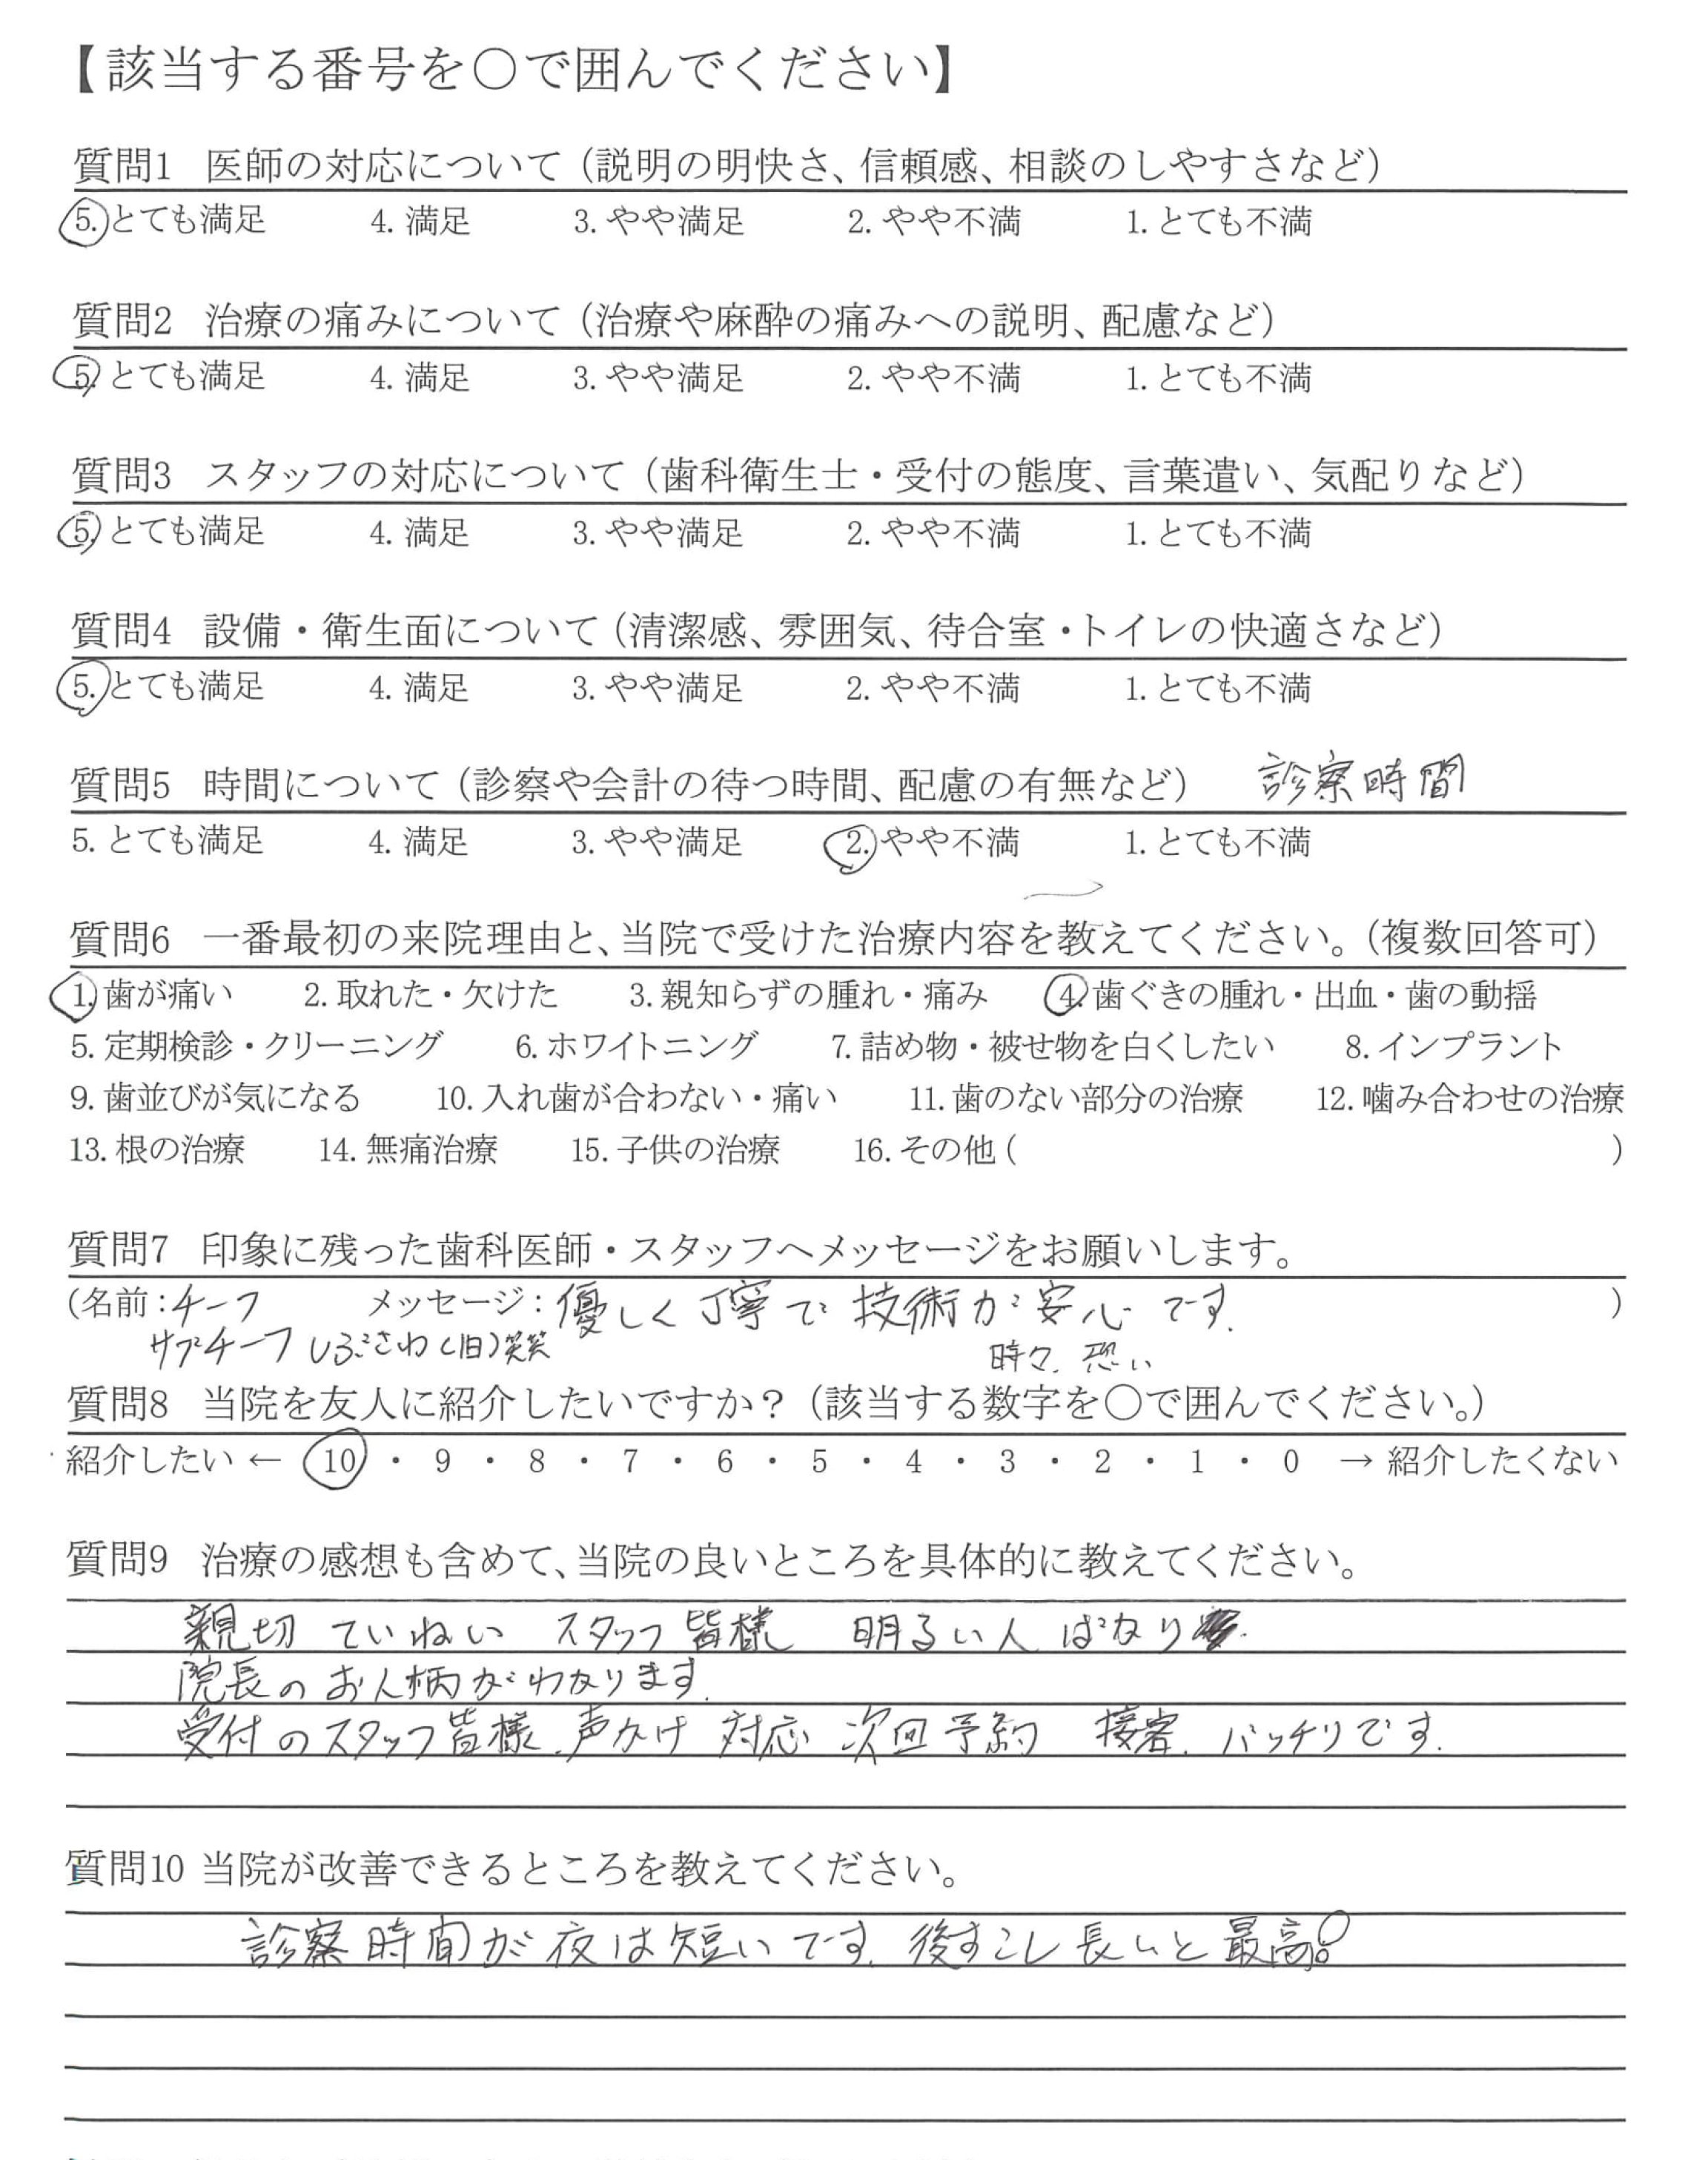 【該当する番号を〇で囲んでください】
質問1 医師の対応について（説明の明快さ、信頼感、相談のしやすさなど）
5. とても満足 4. 満足 3. やや満足 2. やや不満 1. とても不満
質問2 治療の痛みについて（治療や麻酔の痛みへの説明、配慮など）
5. とても満足 4. 満足 3. やや満足 2. やや不満 1. とても不満
質問3 スタッフの対応について（歯科衛生士・受付の態度、言葉遣い、気配りなど）
5. とても満足 4. 満足 3. やや満足 2. やや不満 1. とても不満
質問4 設備・衛生面について（清潔感、雰囲気、待合室・トイレの快適さなど）
5. とても満足 4. 満足 3. やや満足 2. やや不満 1. とても不満
質問5 時間について（診察や会計の待つ時間、配慮の有無など） 診察時間
5. とても満足 4. 満足 3. やや満足 2. やや不満 1. とても不満
質問6 一番最初の来院理由と、当院で受けた治療内容を教えてください。（複数回答可）
1. 歯が痛い 2. 取れた・欠けた 3. 親知らずの腫れ・痛み 4. 歯ぐきの腫れ・出血・歯の動揺
5. 定期検診・クリーニング 6. ホワイトニング 7. 詰め物・被せ物を白くしたい 8. インプラント
9. 歯並びが気になる 10. 入れ歯が合わない・痛い 11. 歯のない部分の治療 12. 噛み合わせの治療
13. 根の治療 14. 無痛治療 15. 子供の治療 16. その他（ ）
質問7 印象に残った歯科医師・スタッフへメッセージをお願いします。
（名前：チーフ メッセージ：優しく丁寧で技術が安心です。 ）
サブチーフ しぶさわ（旧）笑笑 時々、恐い
質問8 当院を友人に紹介したいですか？（該当する数字を〇で囲んでください。）
紹介したい ← 10 ・ 9 ・ 8 ・ 7 ・ 6 ・ 5 ・ 4 ・ 3 ・ 2 ・ 1 ・ 0 → 紹介したくない
質問9 治療の感想も含めて、当院の良いところを具体的に教えてください。
親切 ていねい スタッフ皆様 明るい人ばかり
院長のお人柄がわかります。
受付のスタッフ皆様、声かけ 対応 次回予約 接客、バッチリです。
質問10 当院が改善できるところを教えてください。
診察時間が夜は短いです。後すこし長いと最高！